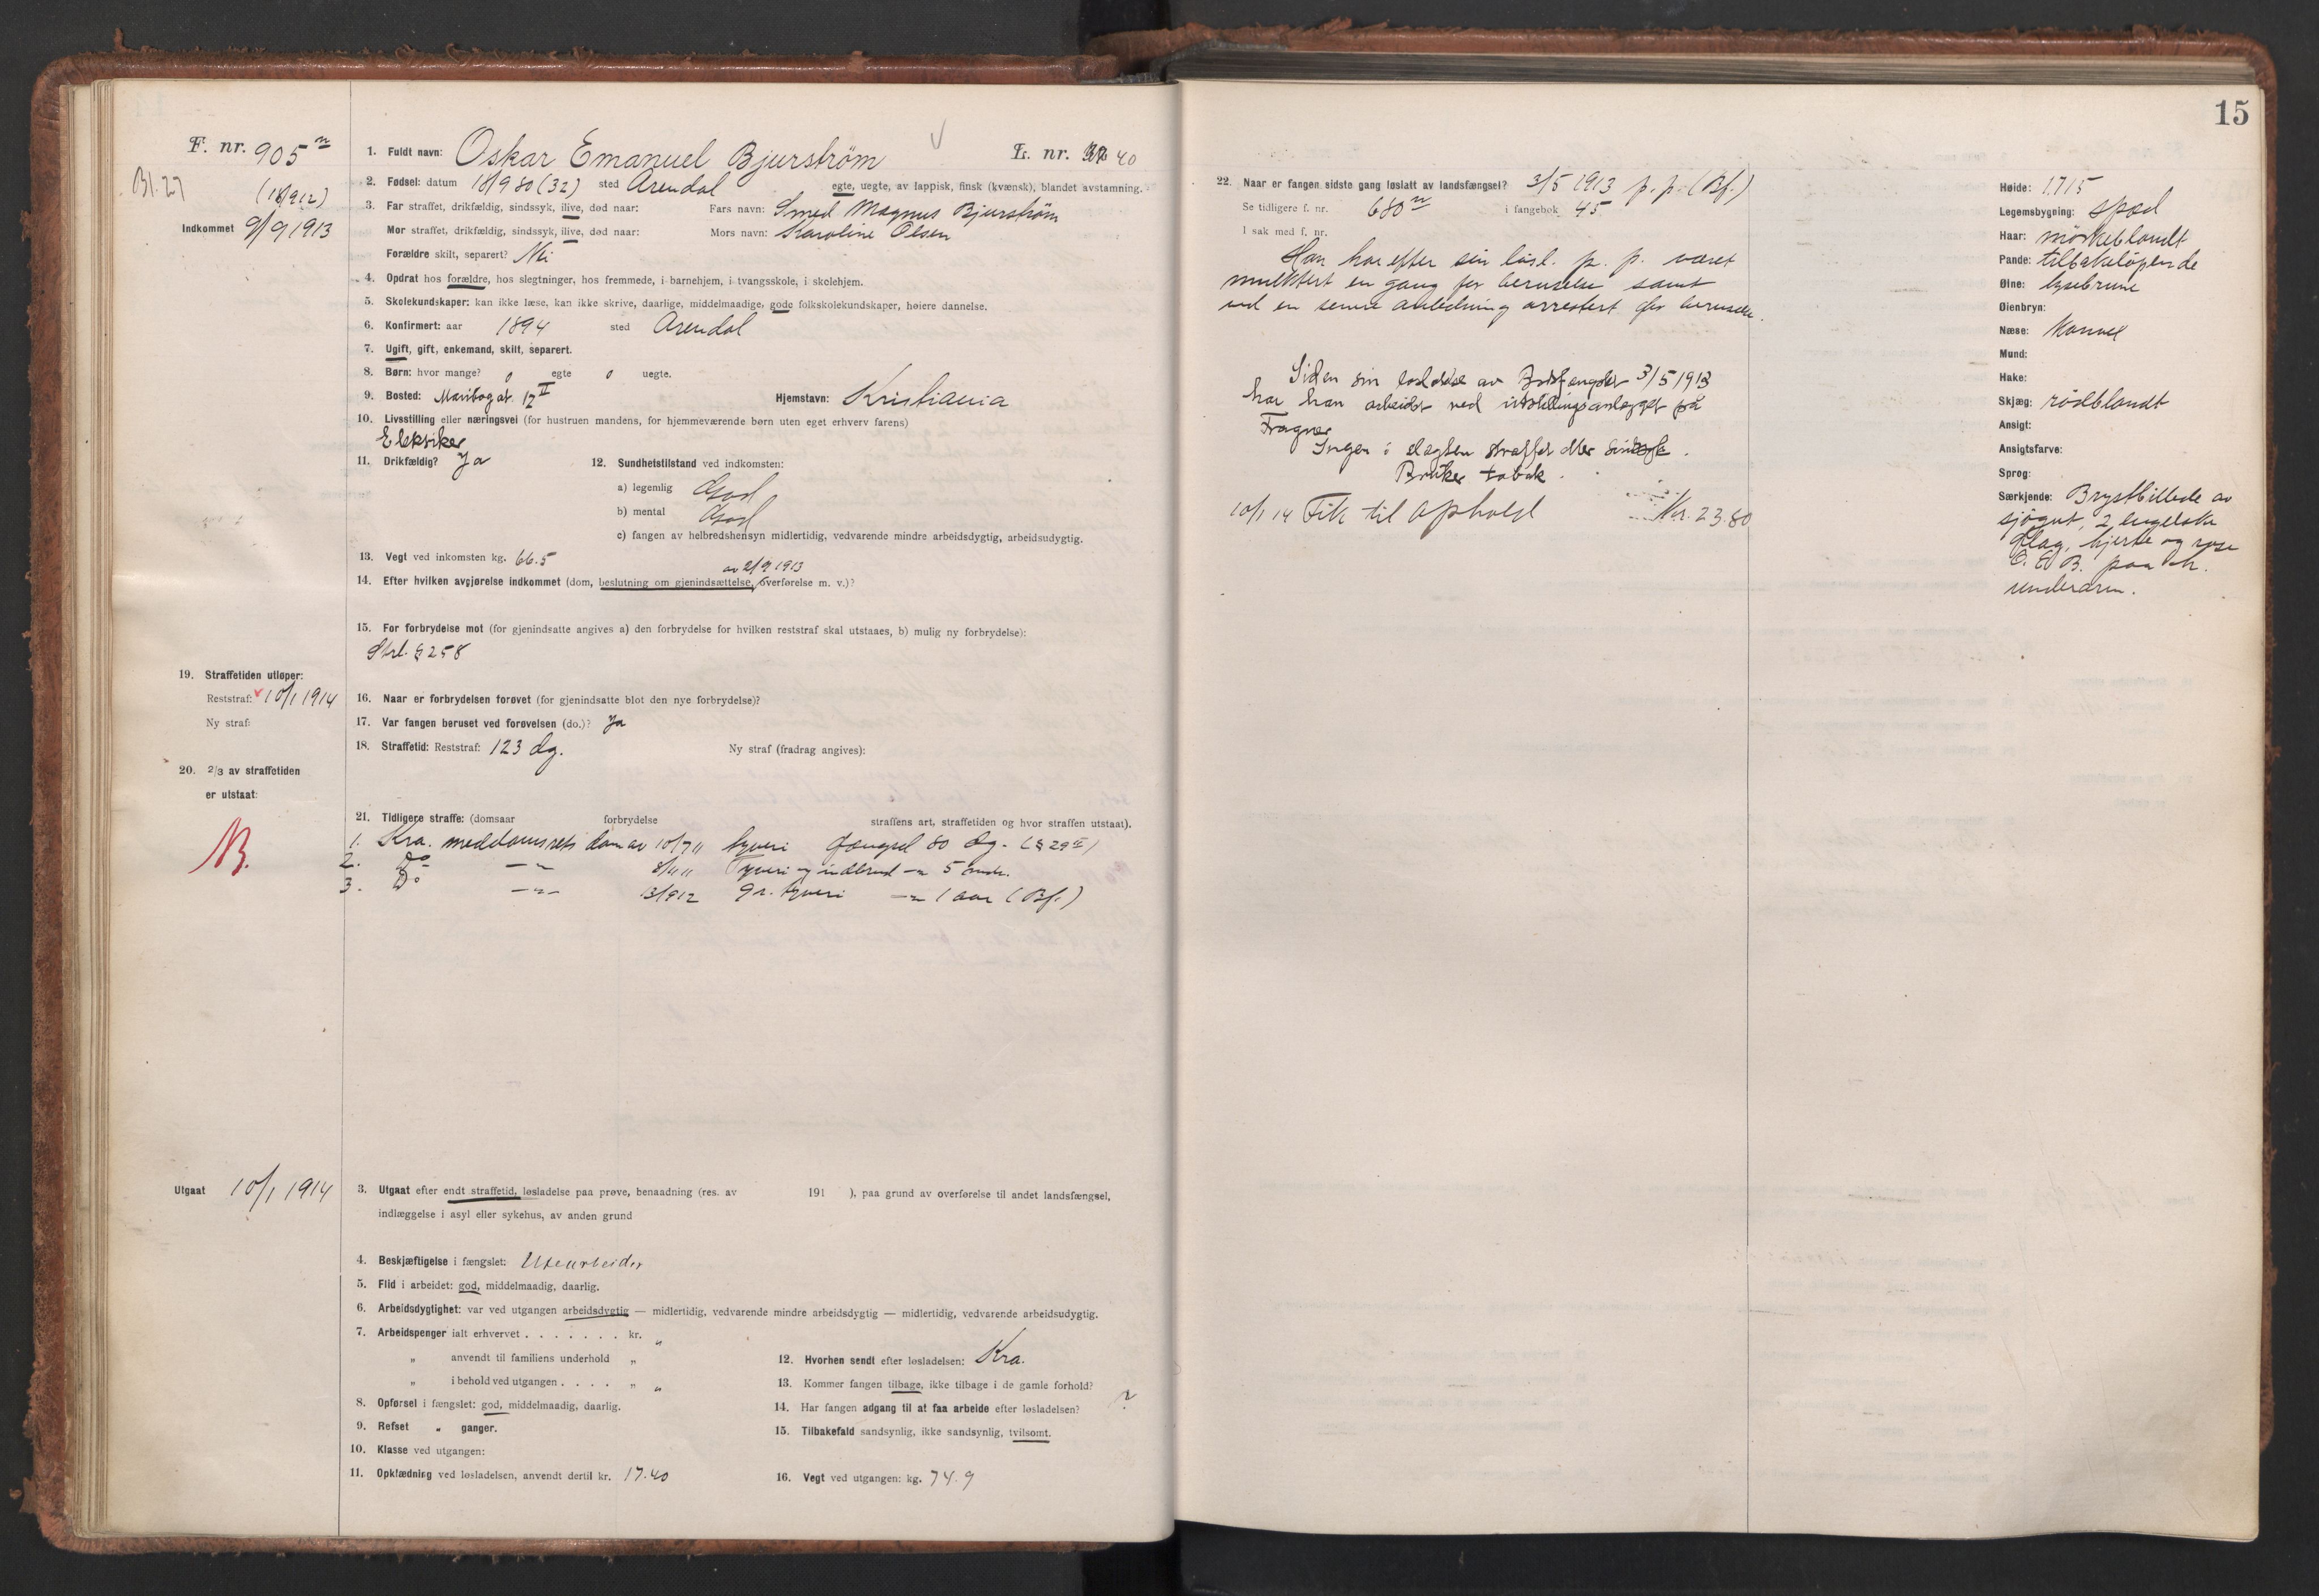 15
F. nr. 905 n
Bl. 27
(18/9 12)
Indkommet 9/9 1913
L. nr. 40
1. Fuldt navn: Oskar Emanuel Bjurström
2. Fødsel: datum 18/9 80 (32) sted Arendal egte, uegte, av lappisk, finsk (kvænsk), blandet avstamning.
3. Far straffet, drikfældig, sindssyk, ilive, død naar: Fars navn: Smed Magnus Bjurström
Mor straffet, drikfældig, sindssyk, ilive, død naar: Mors navn: Karoline Olsen
Forældre skilt, separert? Nei
4. Opdrat hos forældre, hos slegtninger, hos fremmede, i barnehjem, i tvangsskole, i skolehjem.
5. Skolekundskaper: kan ikke læse, kan ikke skrive, daarlige, middelmaadige, gode folkskolekundskaper, høiere dannelse.
6. Konfirmert: aar 1894 sted Arendal
7. Ugift, gift, enkemand, skilt, separert.
8. Børn: hvor mange? 0 egte 0 uegte.
9. Bosted: Maribogat. 12 II Hjemstavn: Kristiania
10. Livsstilling eller næringsvei (for hustruen mandens, for hjemmeværende børn uten eget erhverv farens)
Elektriker
11. Drikfældig? Ja 12. Sundhetstilstand ved indkomsten:
a) legemlig God
b) mental God
c) fangen av helbredshensyn midlertidig, vedvarende mindre arbeidsdygtig, arbeidsudygtig.
13. Vegt ved inkomsten kg. 66.5
av 2/9 1913
14. Efter hvilken avgjørelse indkommet (dom, beslutning om gjenindsættelse, overførelse m. v.)?
15. For forbrydelse mot (for gjenindsatte angives a) den forbrydelse for hvilken reststraf skal utstaaes, b) mulig ny forbrydelse):
Strl. § 258
19. Straffetiden utløper:
Reststraf: 10/1 1914
Ny straf:
16. Naar er forbrydelsen forøvet (for gjenindsatte blot den nye forbrydelse)?
17. Var fangen beruset ved forøvelsen (do.)? Ja
18. Straffetid: Reststraf: 123 dg. Ny straf (fradrag angives):
20. 2/3 av straffetiden
er utstaat:
N.B.
21. Tidligere straffe: (domsaar forbrydelse straffens art, straffetiden og hvor straffen utstaat).
1. Kra. meddomsrets dom av 10/7 11 tyveri fængsel 80 dg. (§ 29 II)
2. Do — " — 8/11 11 Tyveri og indbrud — " 5 mdr.
3. Do — " — 13/9 12 gr. tyveri — " 1 aar (Bf.)
Utgaat 10/1 1914
3. Utgaat efter endt straffetid, løsladelse paa prøve, benaadning (res. av 191 ), paa grund av overførelse til andet landsfængsel,
indlæggelse i asyl eller sykehus, av anden grund
4. Beskjæftigelse i fængslet: Utearbeider
5. Flid i arbeidet: god, middelmaadig, daarlig.
6. Arbeidsdygtighet: var ved utgangen arbeidsdygtig — midlertidig, vedvarende mindre arbeidsdygtig — midlertidig, vedvarende arbeidsudygtig.
7. Arbeidspenger ialt erhvervet . . . . . . . kr. "
" anvendt til familiens underhold "
" i behold ved utgangen . . . . " "
8. Opførsel i fængslet: god, middelmaadig, daarlig.
9. Refset " ganger.
10. Klasse ved utgangen:
11. Opklædning ved løsladelsen, anvendt dertil kr. 17.40
12. Hvorhen sendt efter løsladelsen: Kra.
13. Kommer fangen tilbage, ikke tilbage i de gamle forhold?
14. Har fangen adgang til at faa arbeide efter løsladelsen? ?
15. Tilbakefald sandsynlig, ikke sandsynlig, tvilsomt.
16. Vegt ved utgangen: kg. 74.9
22. Naar er fangen sidste gang løslatt av landsfængsel? 3/5 1913 p. p. (Bf.)
Se tidligere f. nr. 680 n i fangebok 45
I sak med f. nr.
Han har efter sin løsl. p. p. været
mulktert en gang for beruselse samt
ved en senere anledning arrestert for beruselse.
Siden sin løsladelse av Botsfængslet 3/5 1913
har han arbeidet ved utstillingsanlegget på
Frogner
Ingen i slegten straffet eller sindssyk.
Bruker tobak.
10/1 14 Fik til ophold Kr. 23.80
Høide: 1.715
Legemsbygning: spæd
Haar: mörkeblondt
Pande: tilbakelöpende
Øine: lysebrune
Øienbryn:
Næse: Konvex
Mund:
Hake:
Skjæg: rödblondt
Ansigt:
Ansigtsfarve:
Sprog:
Særkjende: Brystbillede av
sjögut, 2 engelske
flag, hjerte og rose
O. E. B. paa h.
underarm.